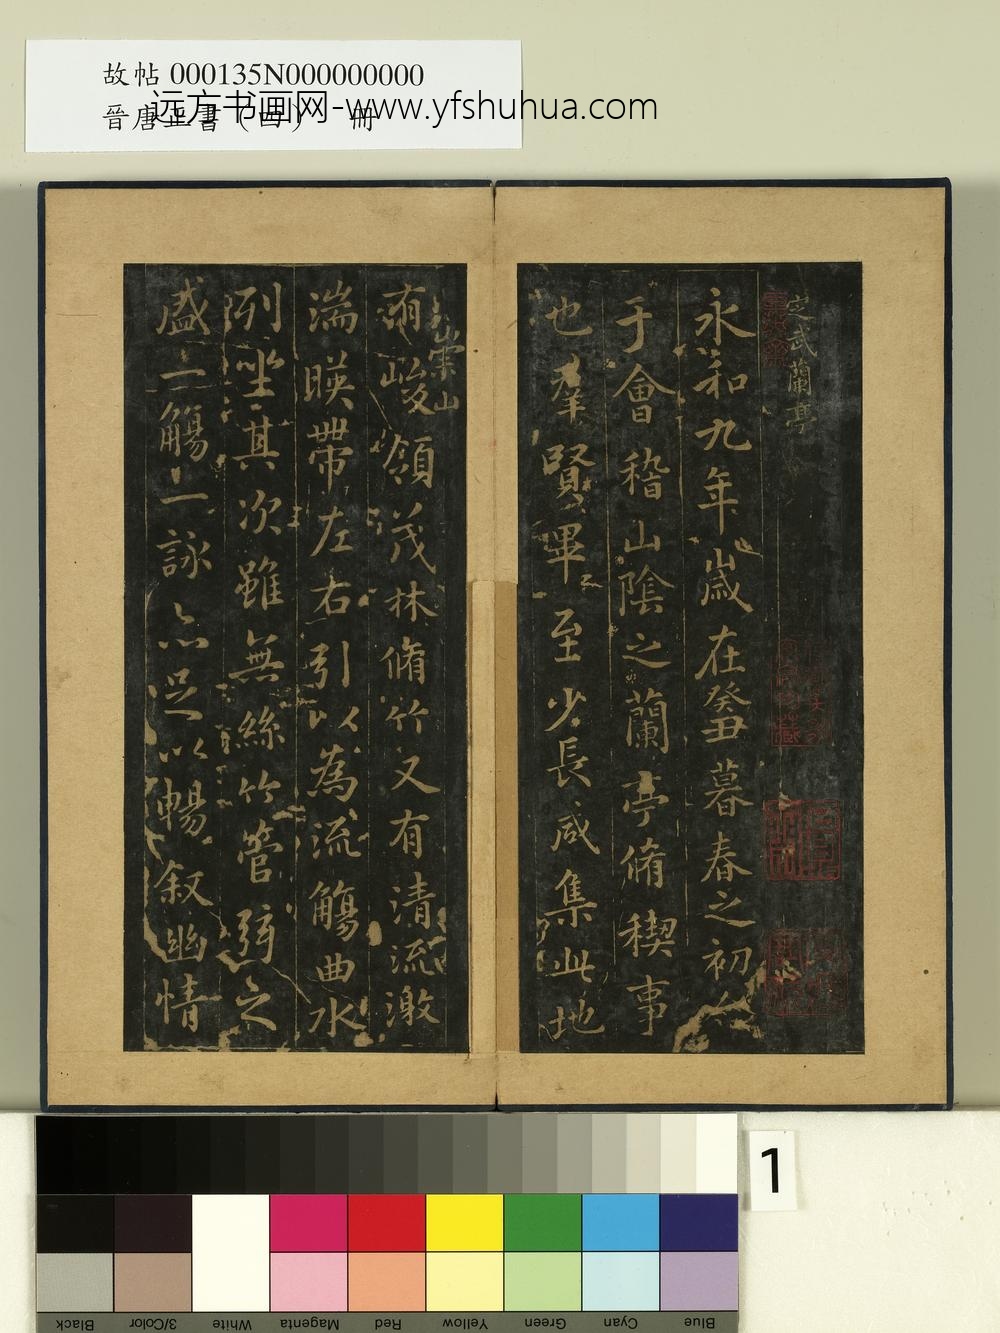 故帖 000135N000000000
晉唐正書（四） 冊
远方书画网-www.yfshuhua.com
定武蘭亭
永和九年歲在癸丑暮春之初會
于會稽山陰之蘭亭脩稧事
也羣賢畢至少長咸集此地
崇山
有峻領茂林脩竹又有清流激
湍暎帶左右引以為流觴曲水
列坐其次雖無絲竹管弦之
盛一觴一詠亦足以暢敘幽情
1
Black
3/Color
White
Magenta
Red
Yellow
Green
Cyan
Blue